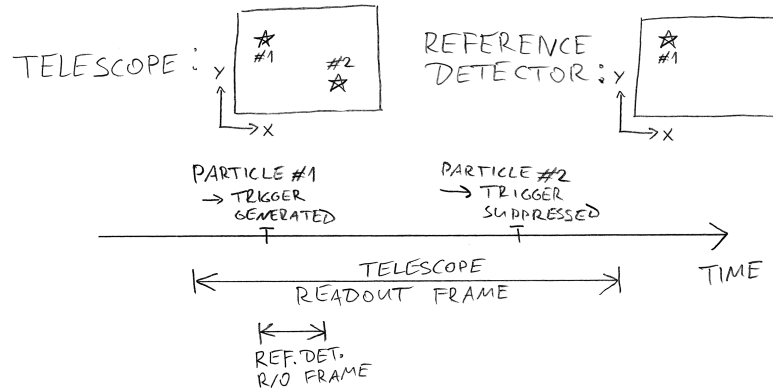 TELESCOPE:
#1
#2
Y
X
REFERENCE
DETECTOR:
#1
Y
X
PARTICLE #1
→ TRIGGER
GENERATED
PARTICLE #2
→ TRIGGER
SUPPRESSED
TIME
TELESCOPE
READOUT FRAME
REF. DET.
R/O FRAME